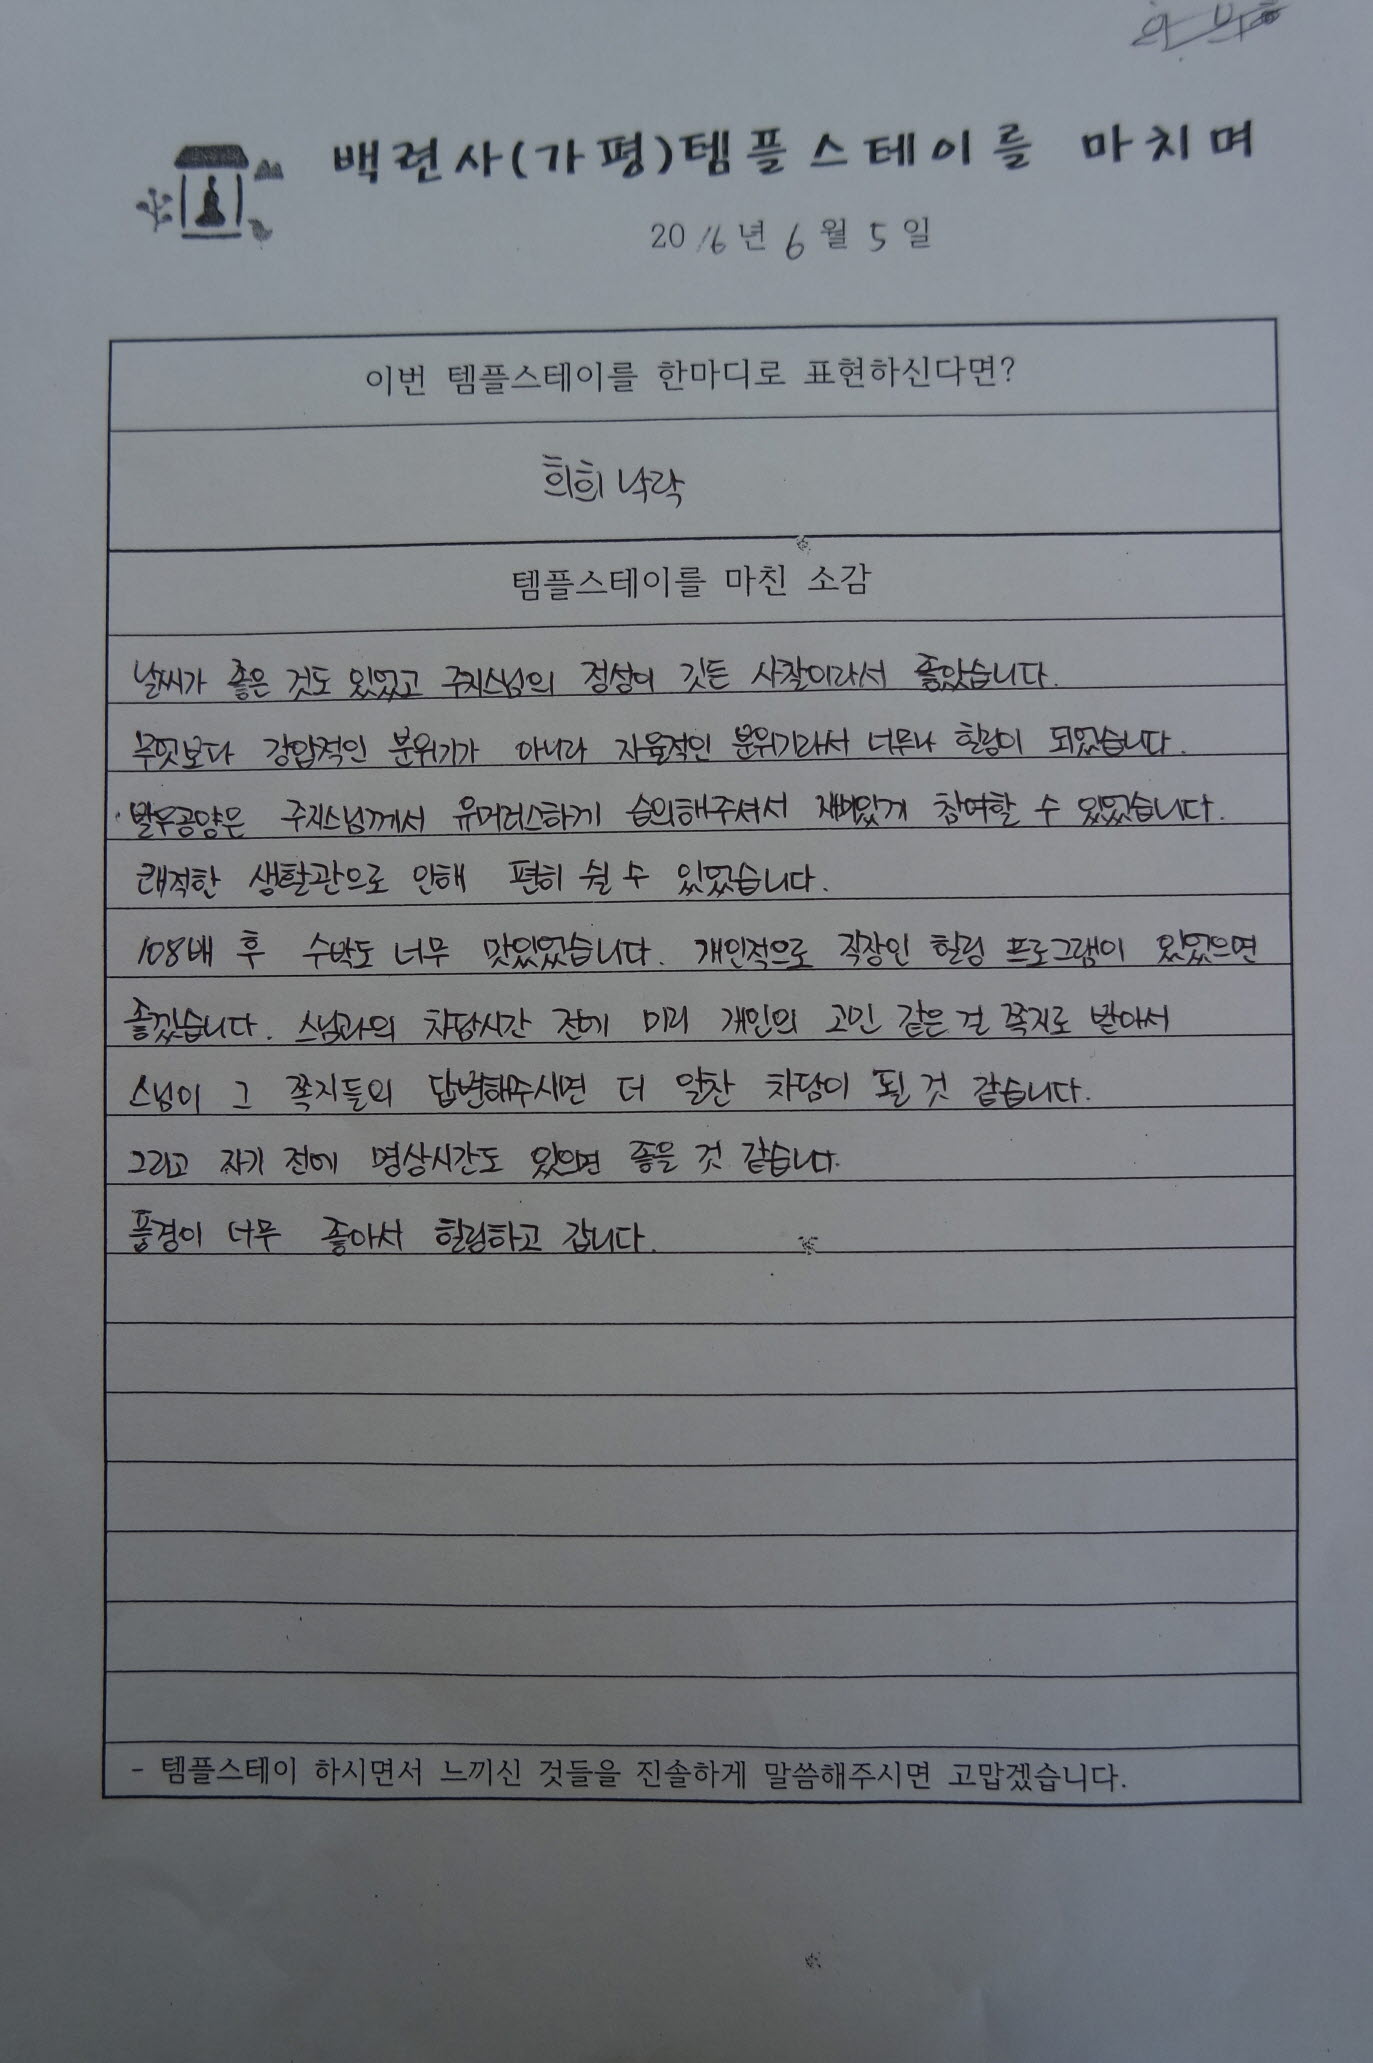 백련사(가평)템플스테이를 마치며
2016년 6월 5일
이번 템플스테이를 한마디로 표현하신다면?
희희낙락
템플스테이를 마친 소감
날씨가 좋은 것도 있었고 주지스님의 정성이 깃든 사찰이라서 좋았습니다.
무엇보다 강압적인 분위기가 아니라 자율적인 분위기라서 너무나 힐링이 되었습니다.
발우공양은 주지스님께서 유머러스하게 습의해주셔서 재미있게 참여할 수 있었습니다.
쾌적한 생활관으로 인해 편히 쉴 수 있었습니다.
108배 후 수박도 너무 맛있었습니다. 개인적으로 직장인 힐링 프로그램이 있었으면
좋겠습니다. 스님과의 차담시간 전에 미리 개인의 고민 같은 걸 쪽지로 받아서
스님이 그 쪽지들의 답변해주시면 더 알찬 차담이 될 것 같습니다.
그리고 자기 전에 명상시간도 있으면 좋을 것 같습니다.
풍경이 너무 좋아서 힐링하고 갑니다.
- 템플스테이 하시면서 느끼신 것들을 진솔하게 말씀해주시면 고맙겠습니다.